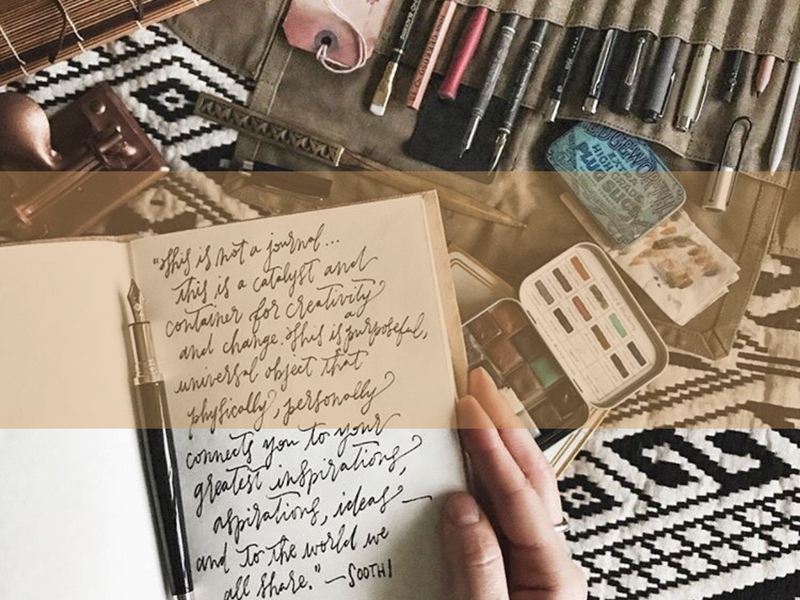 EDGEWORTH
EXTRA
HIGH GRADE
PLUG
SLICE
"This is not a journal...
this is a catalyst and
container for creativity
and change. This is a
purposeful,
universal object that
physically, personally
connects you to your
greatest inspirations,
aspirations, ideas—
and to the world we
all share." —SOOTHI